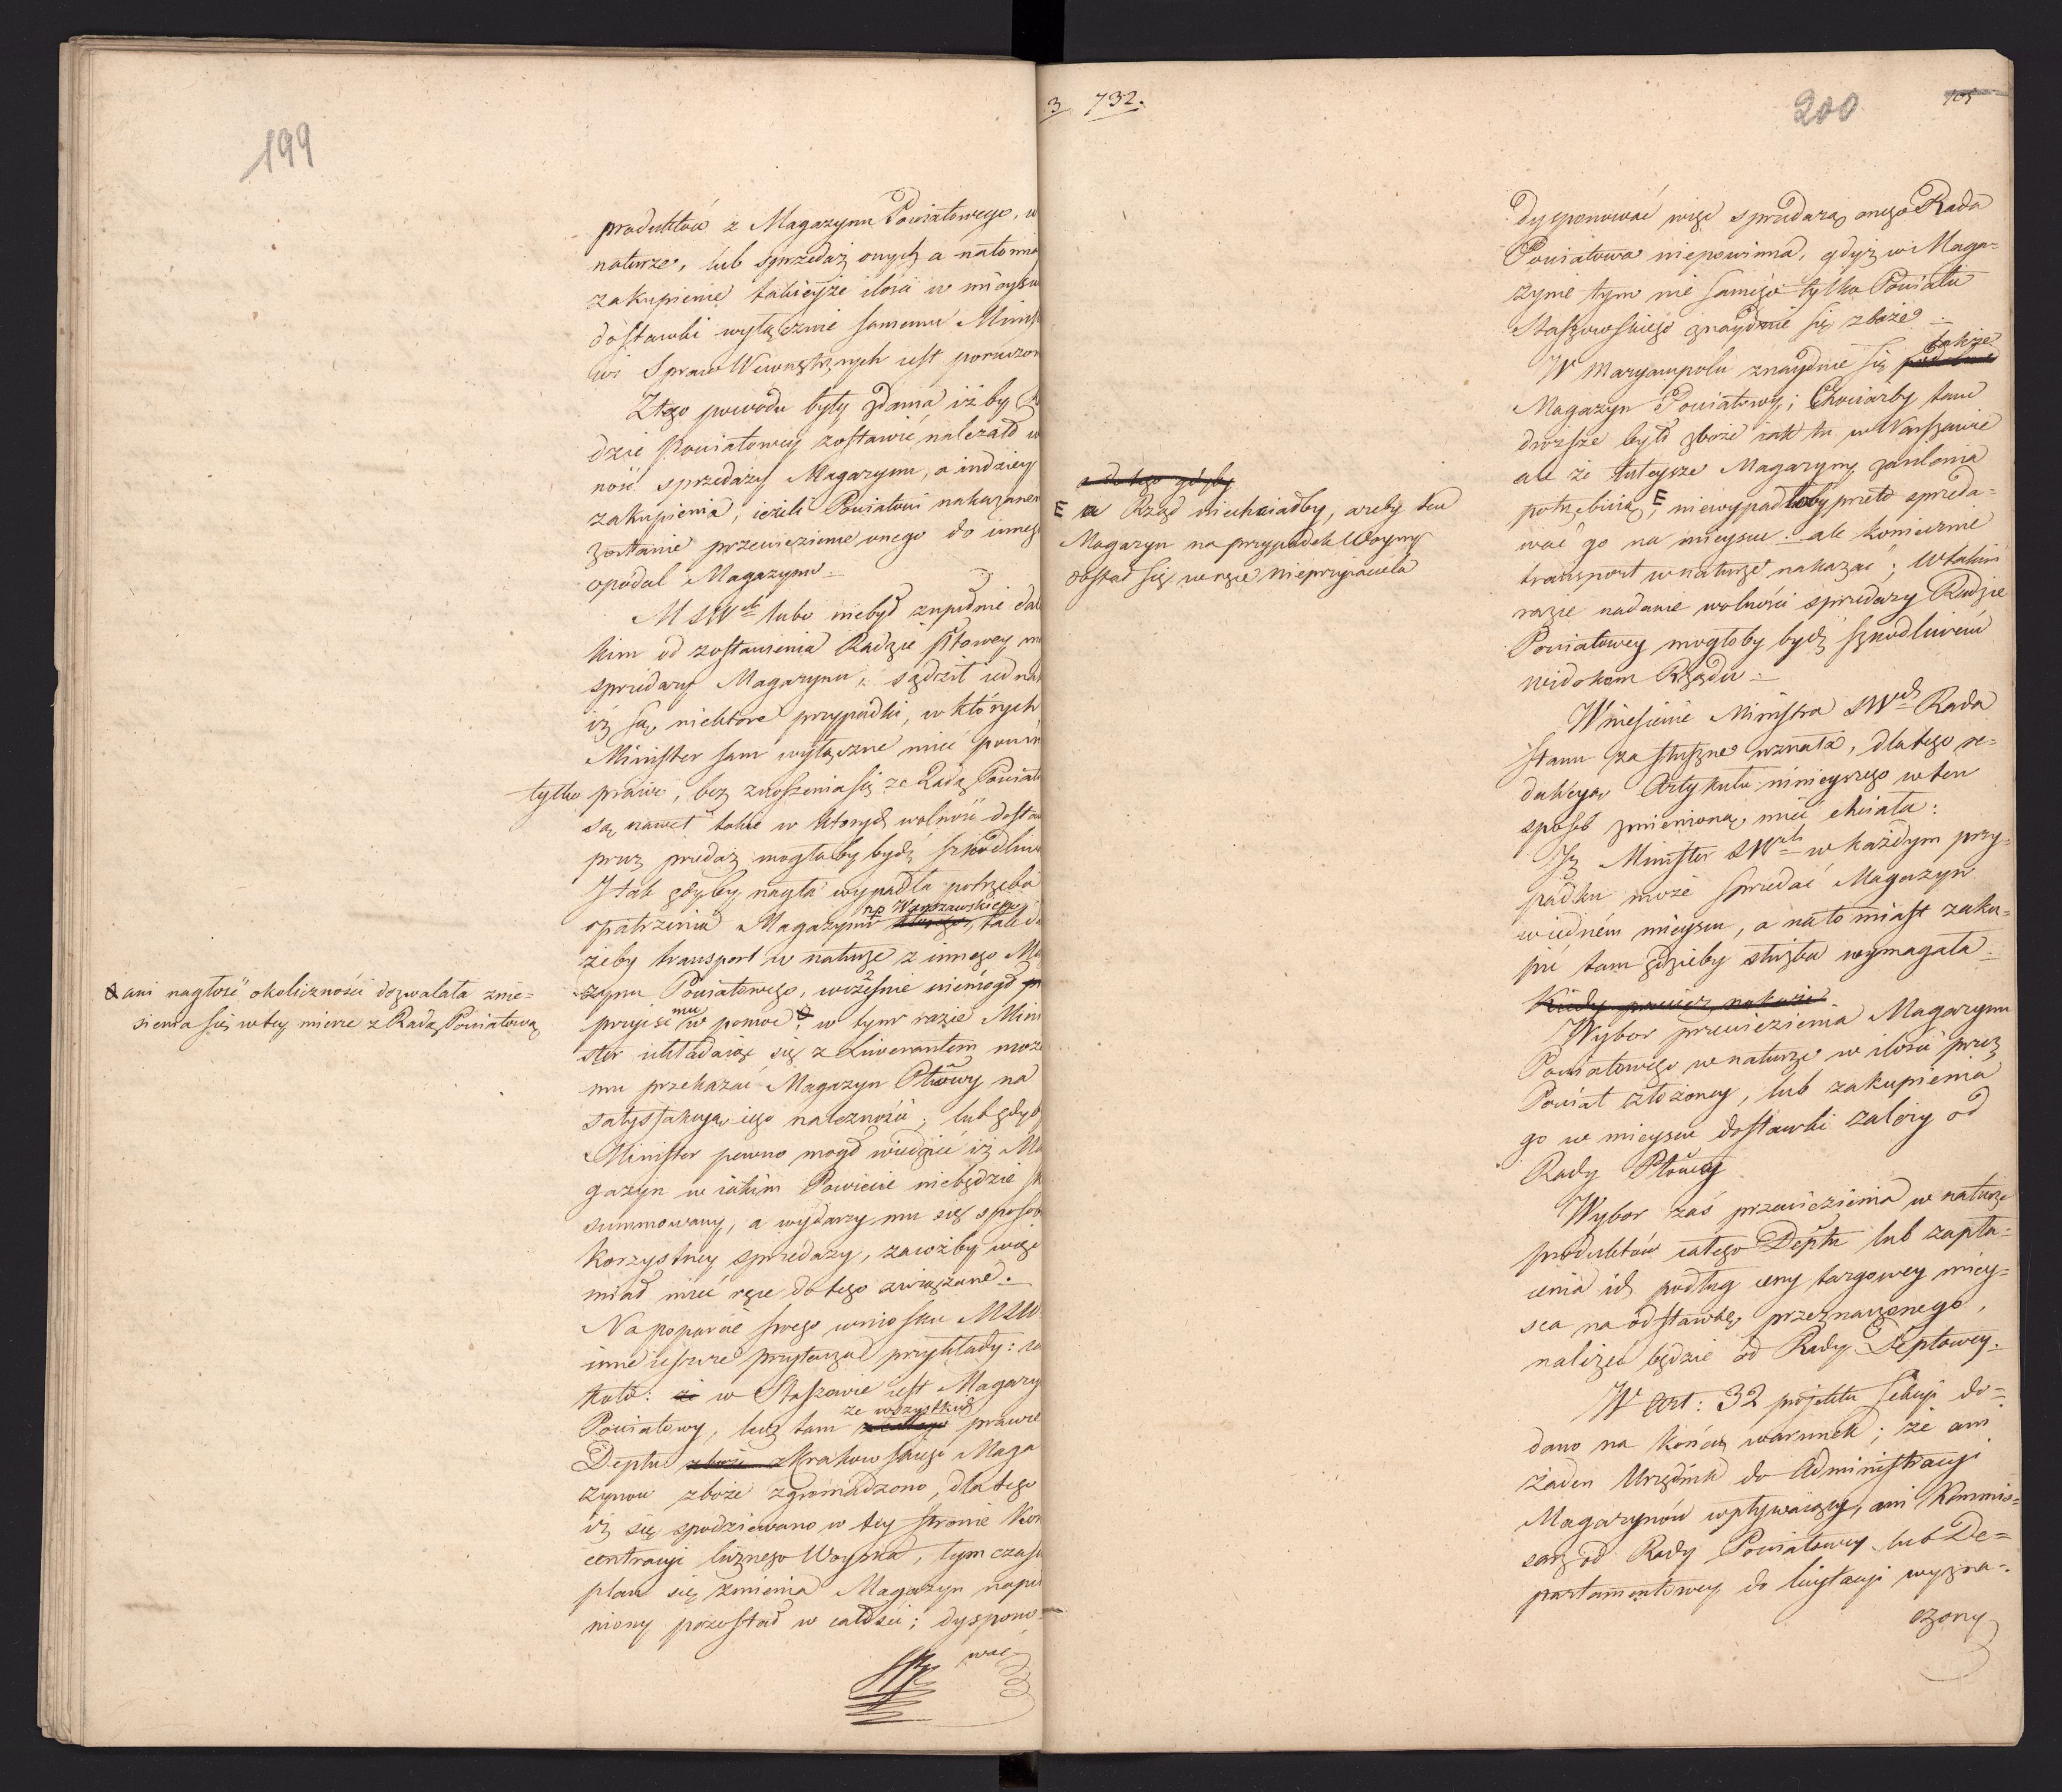 199
produktów z Magazynu Powiatowego, w
naturze, lub sprzedaż onych a natomia
zakupienie takieyże ilości w mieyscu
dostawki wyłącznie samemu Minist
wi Spraw Wewnętrznych iest poruczon
Z tego powodu były zdania iż by R
dzie Powiatowey zostawić należało w
ność sprzedaży Magazynu, a indziey
zakupienia, ieżeli Powiatowi nakazanem
zostanie przewiezienie onego do innego
opodal Magazynu.
M SW lubo niebył zupełnie dale
kim od zostawienia Radzie Ptowey
sprzedaży Magazynu, sądził iedna
iż są niektóre przypadki, w których
Minister sam wyłączne mieć powin
tylko prawo, bez znoszenia się ze Radą Powiato
są nawet takie w których wolność dosta
przez przedaż mogłaby bydź szkodliw
I tak gdyby nagła wypadła potrzeba
np Warszawskiego
opatrzenia Magazynu tak da
żeby transport w naturze z innego Ma
& ani nagłość okoliczności dozwalała znie=
sienia się w tey mierze z Radą Powiatową
zynu Powiatowego, wcześnie niemógł
przyiść mu w pomoc & w tym razie Mini
ster układaiąc się z Liwerantem może
mu przekazać Magazyn Ptowy na
satysfakcyą iego należności; lub gdyby
Minister pewno mógł wiedzieć iż Ma
gazyn w iakim Powiecie niebędzie
summowany, a wydarzy mu się sposob
korzystney sprzedaży, zacóżby więc
miał mieć ręce do tego związane.
Na poparcie swego wniosku MSW
inne ieszcze przytaczał przykłady: ia
koto: że w Staszowie iest Magazy
ze wszystkich
Powiatowy, lecz tam z całego prawie
Deptu zboże Krakowskiego Maga
zynow zboże zgromadzono, dlatego
iż się spodziewano w tey stronie Kon
centracyi licznego Woyska, tym czase
plan się zmienia Magazyn napeł
niony pozostał w całości; dyspono=
wać
3 732.
200
105
a do tego gdyby
E a Rząd niechciałby, ażeby ten
Magazyn na przypadek Woyny
dostał się w ręce nieprzyiaciela
dysponować więc sprzedażą onego Rada
Powiatowa niepowinna, gdyż w Maga=
zynie tym nie samego tylko Powiatu
Staszowskiego znayduie się zboże.
także
W Maryampolu znayduie się podobnie
Magazyn Powiatowy; Chociażby tam
droższe było zboże iak tu w Warszawie
ale że tuteysze Magazyny zasilenia
potrzebuią, E niewypadłoby przeto sprzeda=
wać go na mieyscu. ale koniecznie
transport w naturze nakazać; W takim
razie nadanie wolności sprzedaży Radzie
Powiatowey mogłoby bydź szkodliwem
widokom Rządu.
Wniesienie Ministra SW Rada
Stanu za słuszne uznała, dlatego re=
dakcyą Artykułu ninieyszego w ten
sposób zmienioną mieć chciała:
Iż Minister SW w każdym przy=
padku może sprzedać Magazyn
w iedném mieyscu, a natomiast zaku=
pić tam gdzieby służba wymagała.
Kiedy nakaże
Wybor przewiezienia Magazynu
Powiatowego w naturze w ilości przez
Powiat złożoney, lub zakupienia
go w mieyscu dostawki zależy od
Rady Ptowey
Wybor zaś przewiezienia w naturze
produktów całego Deptu lub zapła=
cenia ich podług ceny targowey miey=
sca na odstawkę przeznaczonego,
należeć będzie od Rady Deptowey.
W Art: 32 projektu Sekcyi do=
dano na końcu warunek; że ani
żaden Urzędnik do Administracyi
Magazynów wpływaiący, ani Kommis=
sarz od Rady Powiatowey lub De=
partamentowey do licytacyi wyzna=
czony